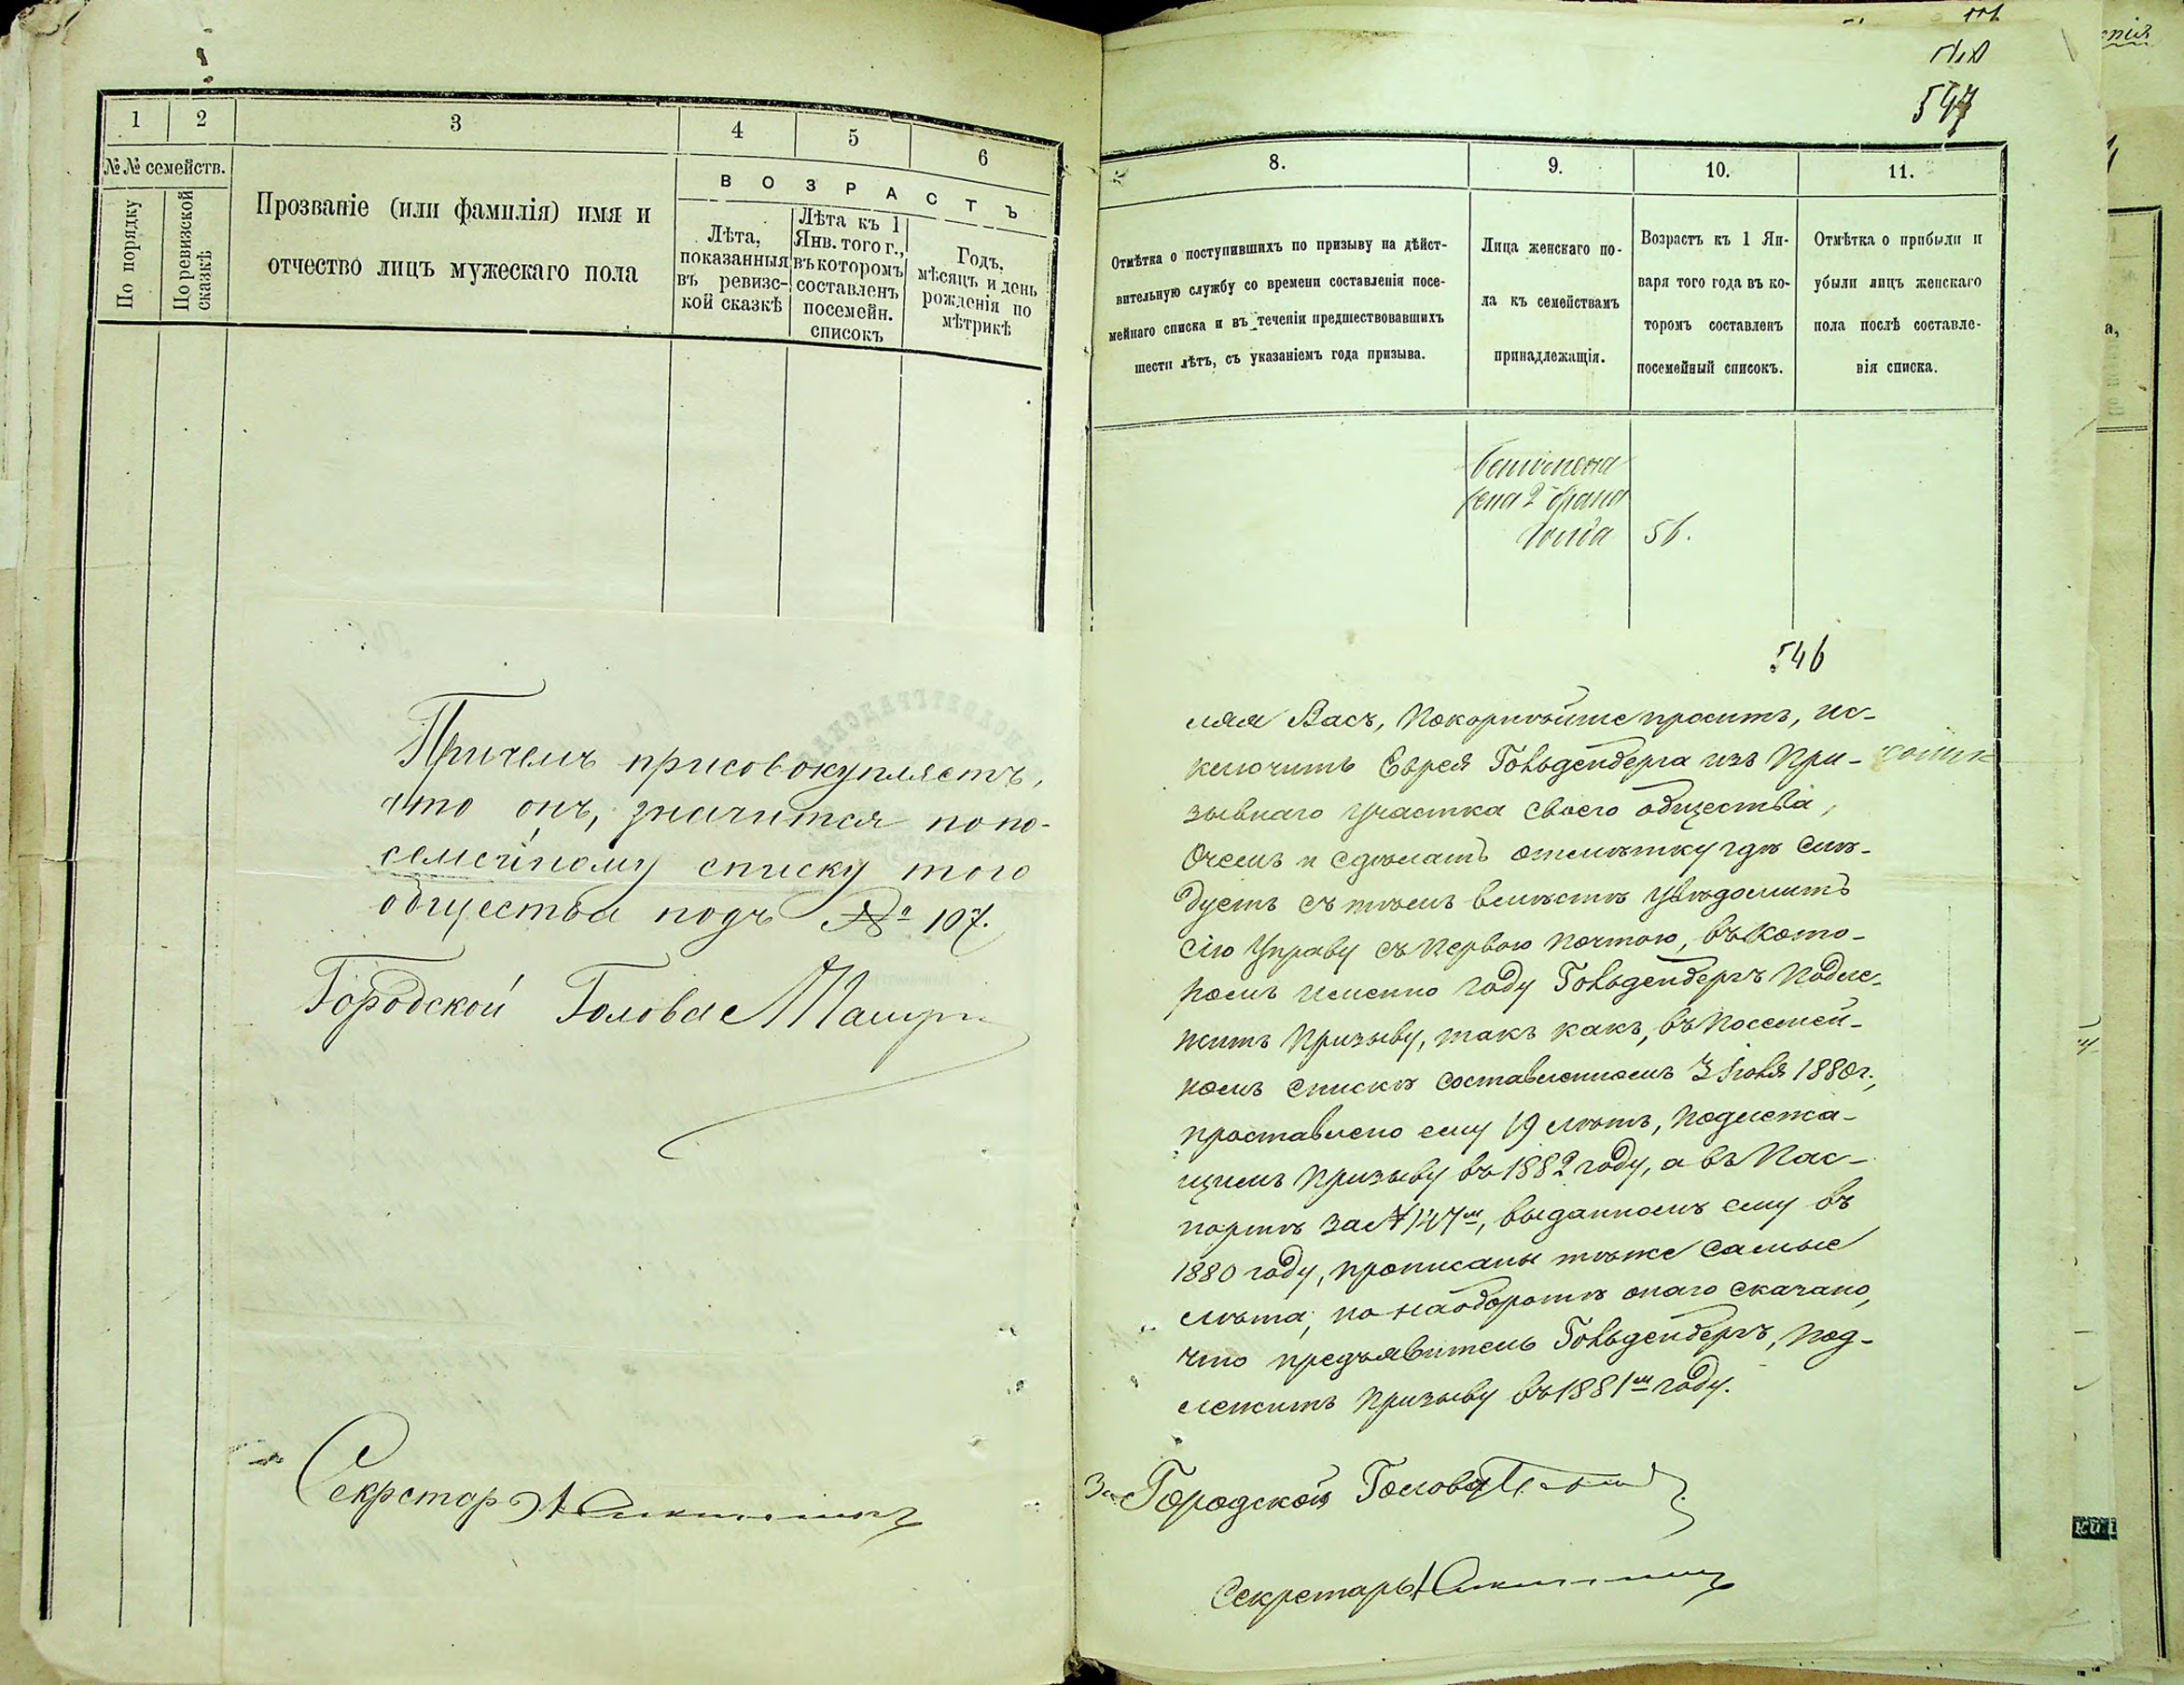 1
2
3
4
5
6
№№ семействъ.
По порядку
По ревизской
сказкѣ
Прозваніе (или фамилія) имя и
отчество лицъ мужескаго пола
ВОЗРАСТЪ
Лѣта,
показанныя
въ ревизс-
кой сказкѣ
Лѣта къ 1
Янв. того г.,
въ которомъ
составленъ
посемейн.
списокъ
Годъ,
мѣсяцъ и день
рожденія по
мѣтрикѣ
Причемъ присовокупляетъ,
что онъ, значится по по-
семейному списку того
общества подъ № 107.
Городской Голова
Секретарь
547
8.
9.
10.
11.
Отмѣтка о поступившихъ по призыву на дѣйст-
вительную службу со времени составленія посе-
мейнаго списка и въ теченіи предшествовавшихъ
шести лѣтъ, съ указаніемъ года призыва.
Лица женскаго по-
ла къ семействамъ
принадлежащія.
Возрастъ къ 1 Ян-
варя того года въ ко-
торомъ составленъ
посемейный списокъ.
Отмѣтка о прибыли и
убыли лицъ женскаго
пола послѣ составле-
нія списка.
2 брака
56.
546
ляя Васъ, покорнѣйше проситъ, ис-
ключить Еврея Гольденберга изъ При-
зывнаго участка своего общества,
о чемъ и сдѣлать отмѣтку гдѣ слѣ-
дуетъ съ тѣмъ вмѣстѣ увѣдомить
сію Управу съ первою почтою, въ кото-
ромъ именно году Гольденбергъ подле-
житъ призыву, такъ какъ, въ посемей-
номъ спискѣ составленномъ 3 Іюля 1880 г.,
проставлено ему 19 лѣтъ, подлежа-
щимъ призыву въ 1882 году, а въ пас-
портѣ за № 147м, выданномъ ему въ
1880 году, прописаны тѣже самые
лѣта; но на оборотѣ онаго сказано,
что предъявитель Гольденбергъ, под-
лежитъ призыву въ 1881м году.
За Городской Голова
Секретарь